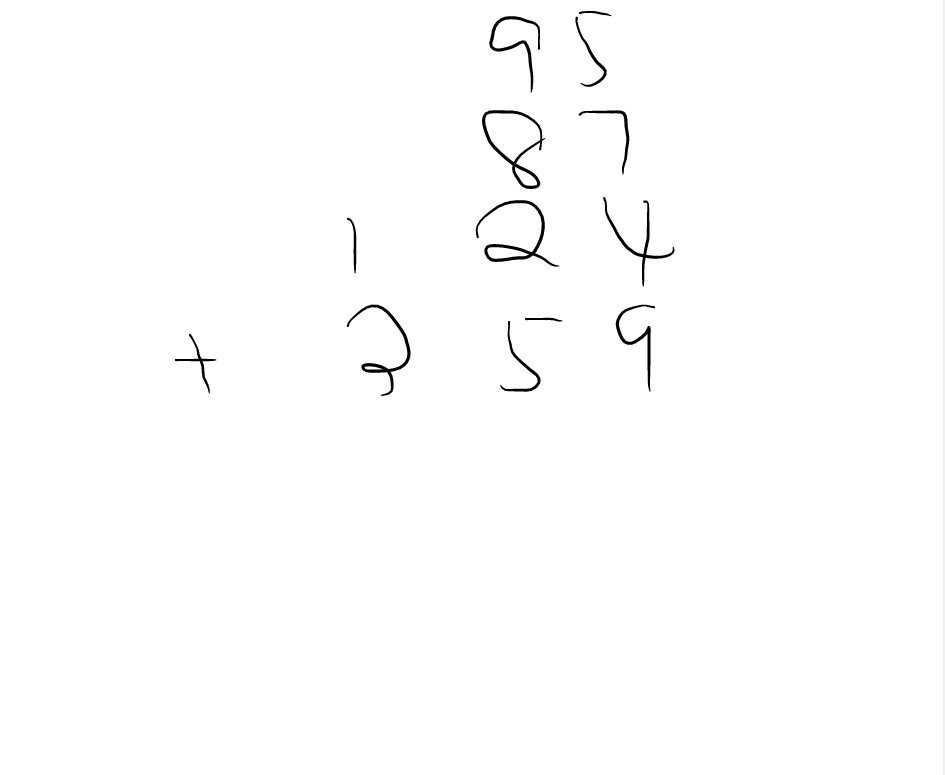 95
87
124
+ 259